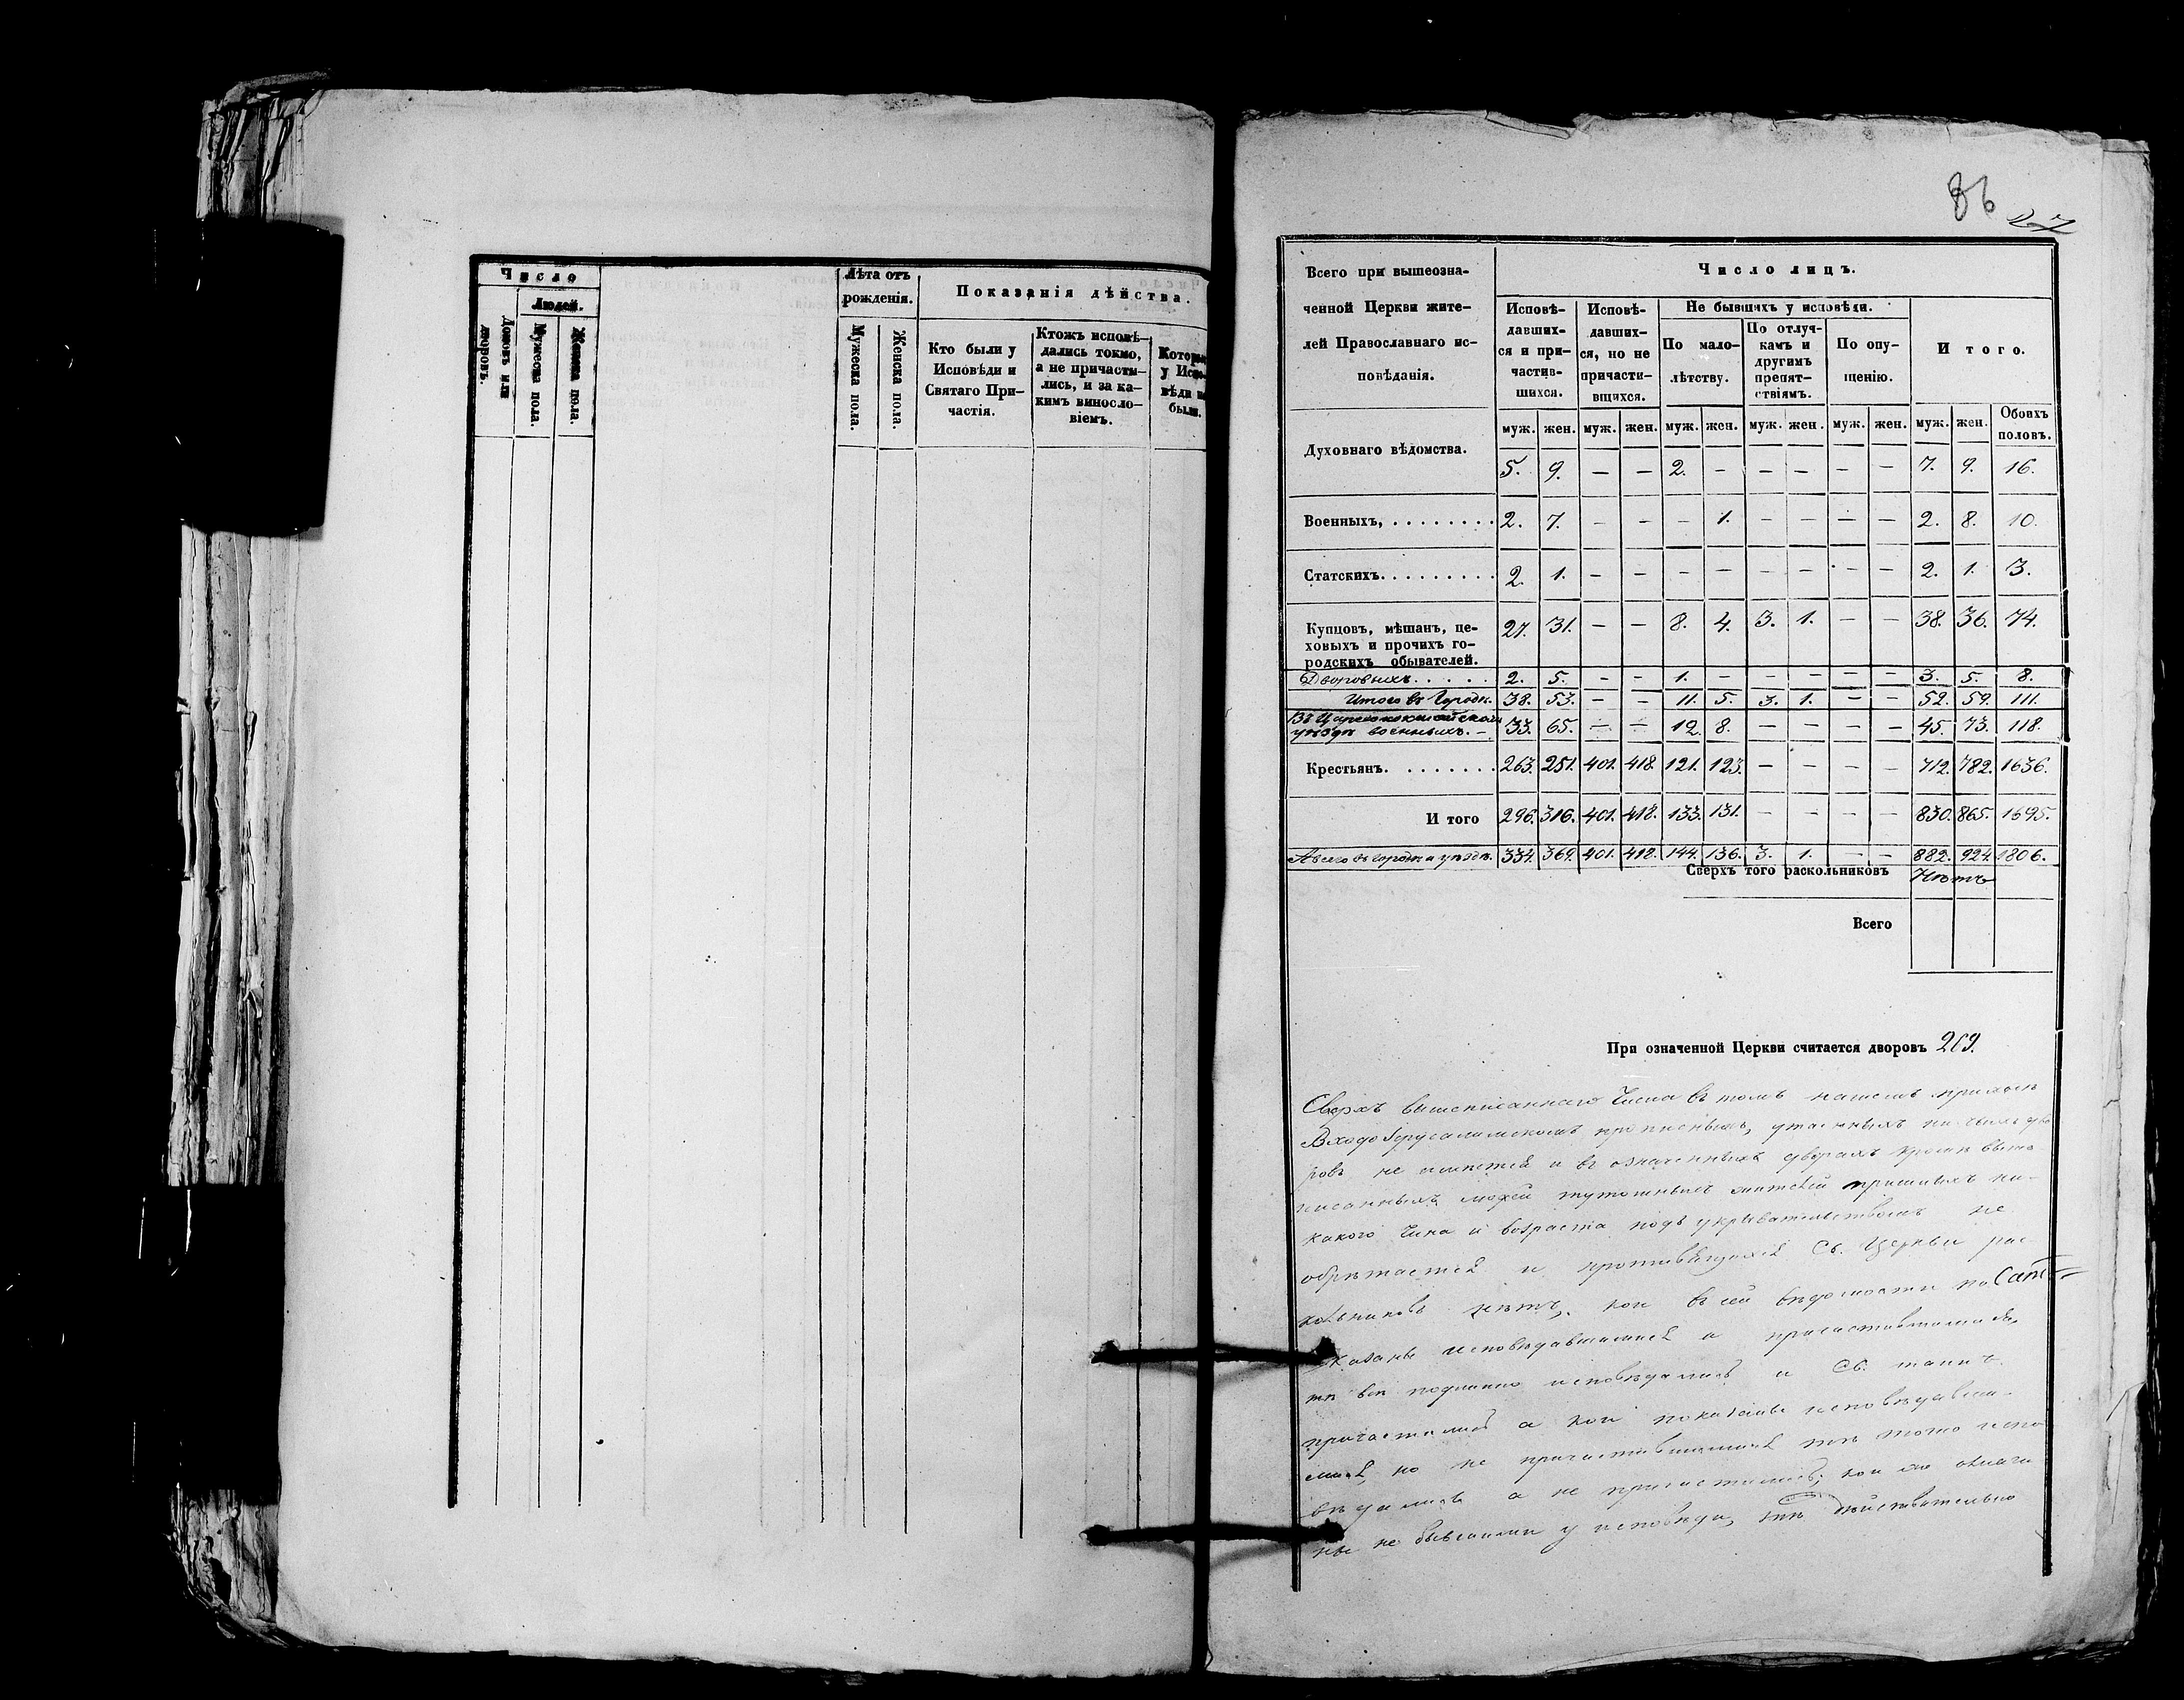 Число
Людей.
Домовъ или дворовъ.
Мужеска пола.
Женска пола.
Лѣта отъ рожденія.
Мужеска пола.
Женска пола.
Показанія дѣйства.
Кто были у Исповѣди и Святаго При-
частія.
Ктожъ исповѣ-
дались токмо,
а не причасти-
лись, и за ка-
кимъ винословіемъ.
у
были.
86
27
Всего при вышеозна-
ченной Церкви жите-
лей Православнаго ис-
повѣданія.
Число лицъ.
Исповѣ-
давших-
ся и при-
частив-
шихся.
Исповѣ-
давших-
ся, но не
причасти-
вшихся.
Не бывшихъ у исповѣди.
По мало-
лѣтству.
По отлуч-
камъ и
другимъ
препят-
ствіямъ.
По опу-
щенію.
Итого.
муж. жен. муж. жен. муж. жен. муж. жен. муж. жен. муж. жен. Обоихъ половъ.
Духовнаго вѣдомства. 5. 9. — — 2. — — — — — 7. 9. 16.
Военныхъ, . . . . . . . . 2. 7. — — — 1. — — — — 2. 8. 10.
Статскихъ. . . . . . . . . 2. 1. — — — — — — — — 2. 1. 3.
Купцовъ, мѣщанъ, це-
ховыхъ и прочихъ го-
родскихъ обывателей. 27. 31. — — 8. 4. 3. 1. — — 38. 36. 74.
Дворовыхъ. . . . . 2. 5. — — 1. — — — — — 3. 5. 8.
Итого въ Городѣ. 38. 53. — — 11. 5. 3. 1. — — 52. 59. 111.
Въ Царевококшайскомъ
уѣздѣ военныхъ. — 33. 65. — — 12. 8. — — — — 45. 73. 118.
Крестьянъ. . . . . . . . 263. 251. 401. 418. 121. 123. — — — — 712. 782. 1636.
Итого 296. 316. 401. 418. 133. 131. — — — — 830. 865. 1695.
А всего въ городѣ и уѣздѣ. 334. 369. 401. 418. 144. 136. 3. 1. — — 882. 924. 1806.
Сверхъ того раскольниковъ Нѣтъ
Всего
При означенной Церкви считается дворовъ 269.
Сверхъ вышеписаннаго числа въ томъ нашемъ приходѣ
Входоіерусалимскомъ прописныхъ, утаенныхъ
ровъ не имѣется и въ означенныхъ дворахъ кромѣ выше
писанныхъ людей тутошныхъ жителей пришлыхъ ни-
какого чина и возраста подъ укрывательствомъ не
обрѣтается и противящихся Св. Церкви рас-
кольниковъ нѣтъ, кои въ сей вѣдомости по
указаны исповѣдавшимися и причастившимися,
тѣ всѣ подлинно исповѣдались и Св. таинъ
причастились а кои показаны исповѣдавши-
мися, но не причастившимися тѣ токмо испо
вѣдались а не причастились; кои же означе
ны не бывшими у исповѣди, тѣ дѣйствительно